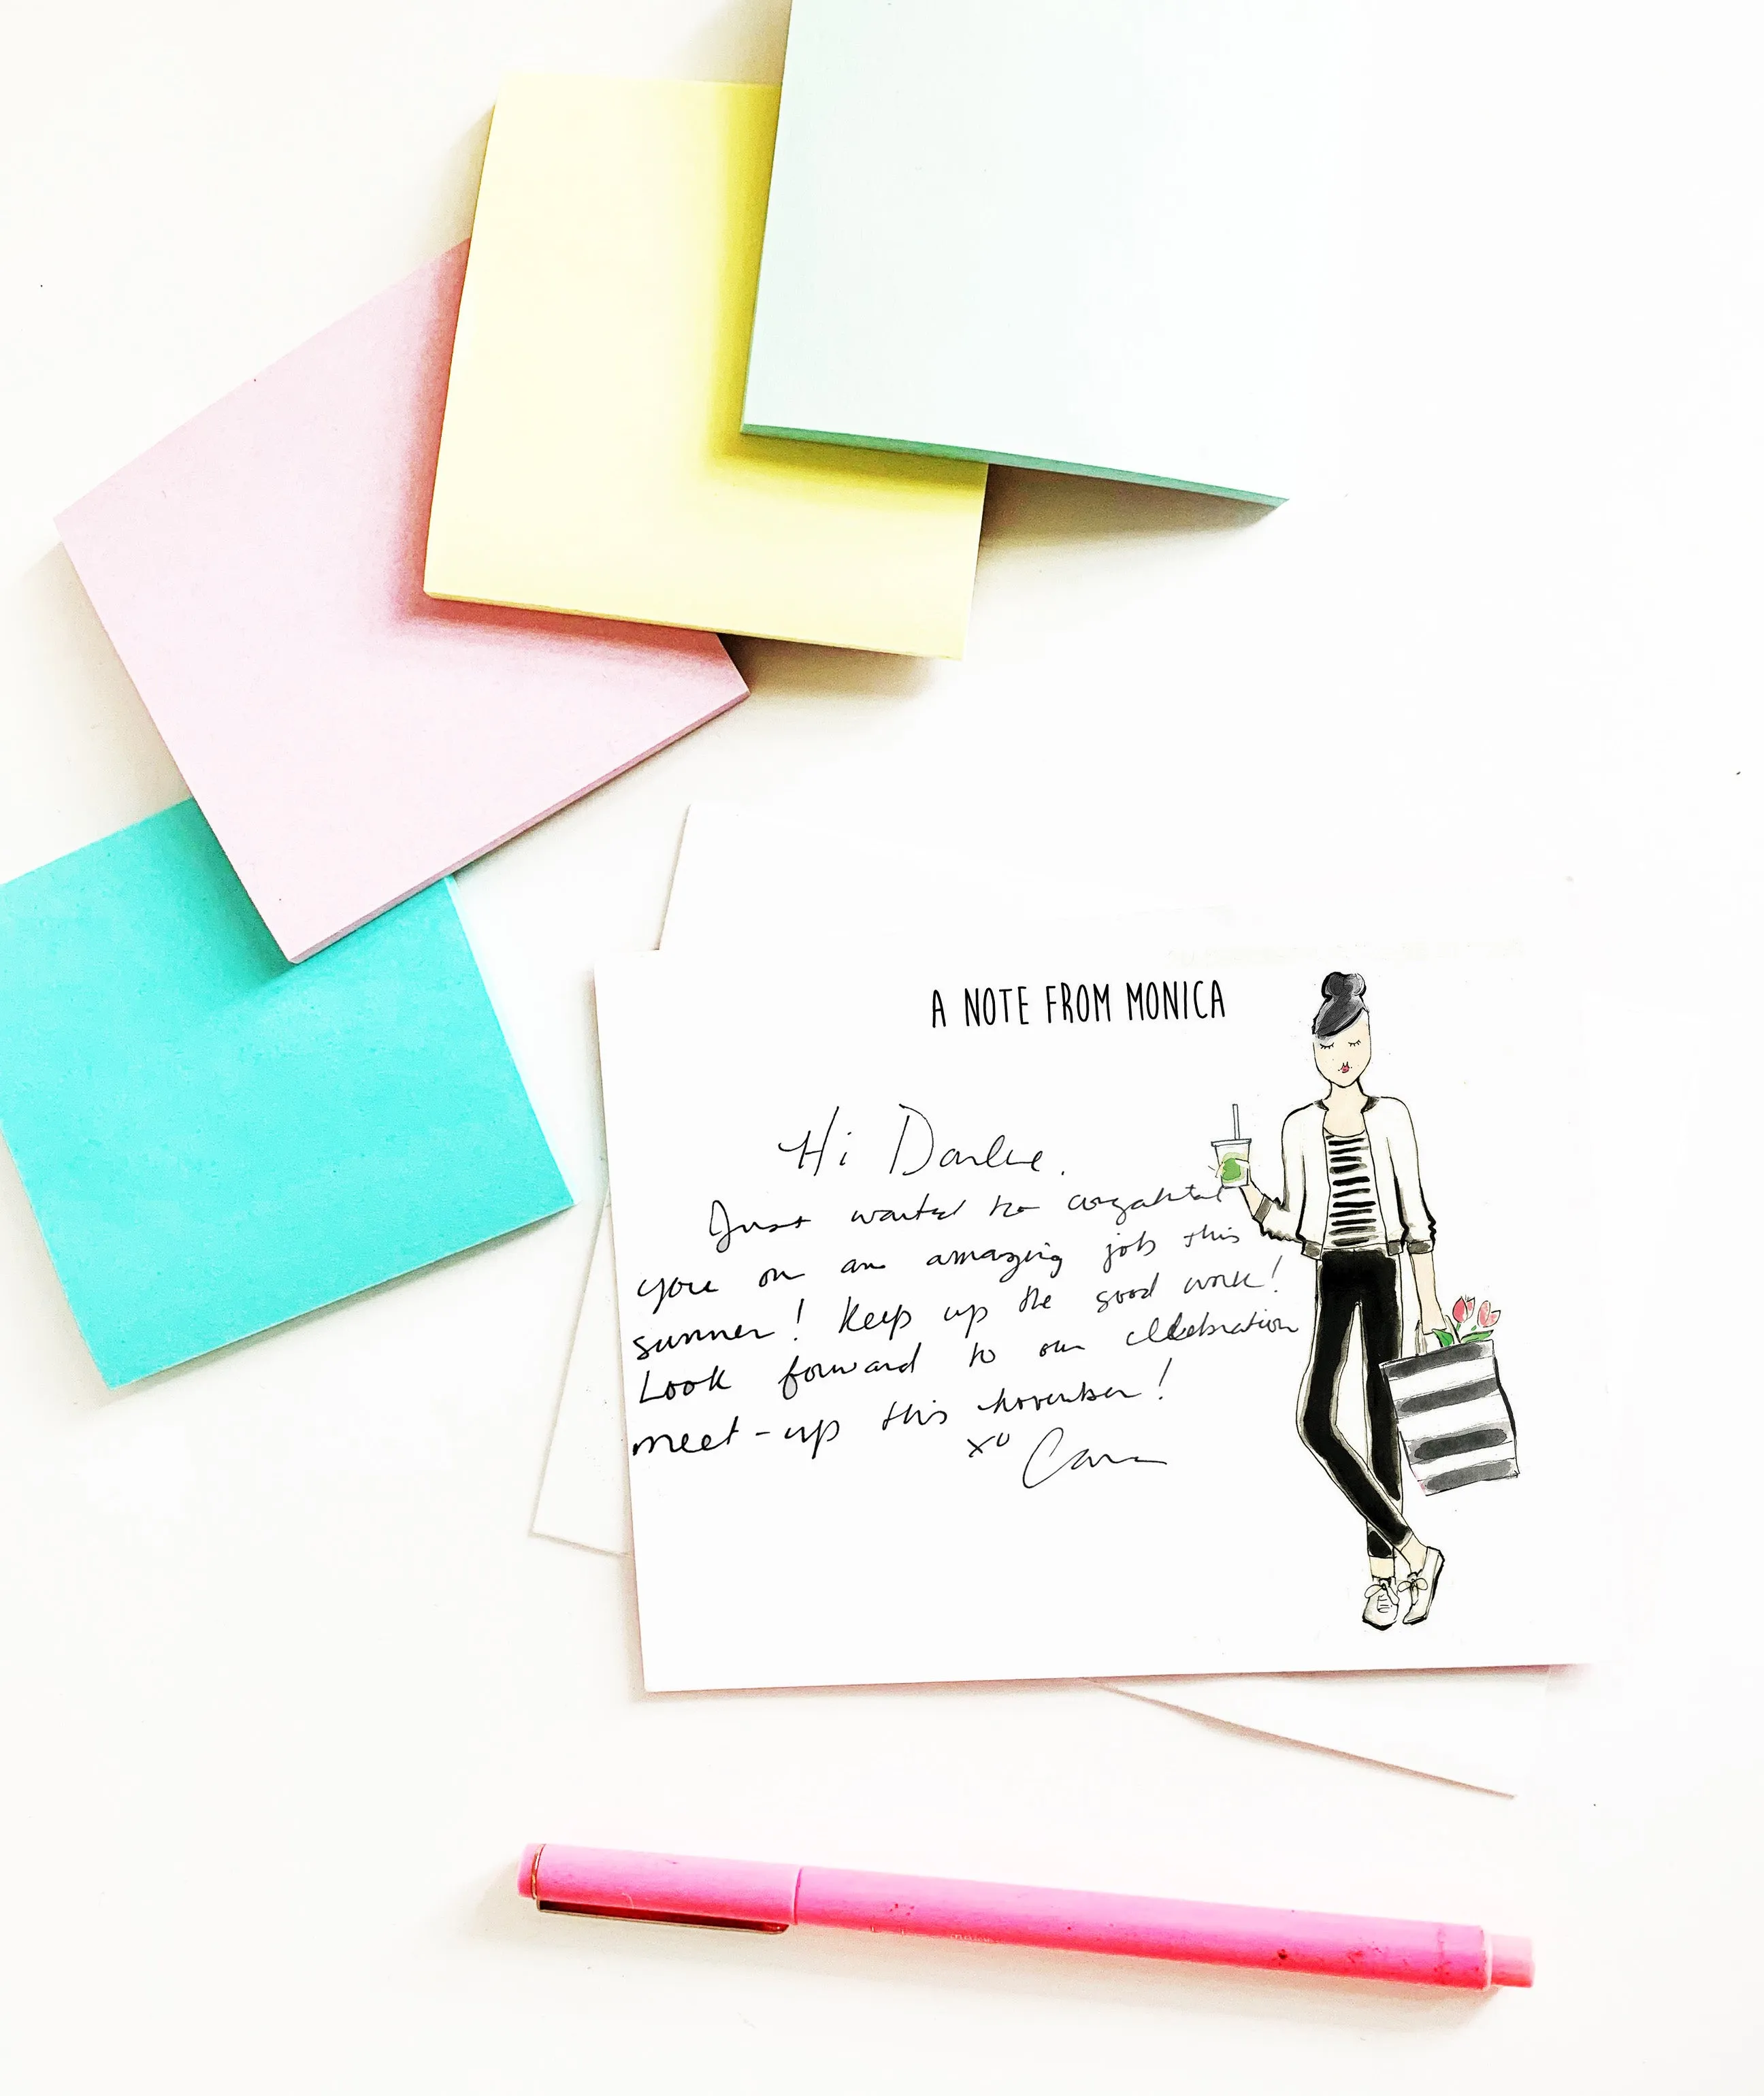 A NOTE FROM MONICA
Hi Darlene.
Just wanted to
you on an amazing job this
summer! Keep up the good work!
Look forward to our celebration
meet-up this november!
xo Cara